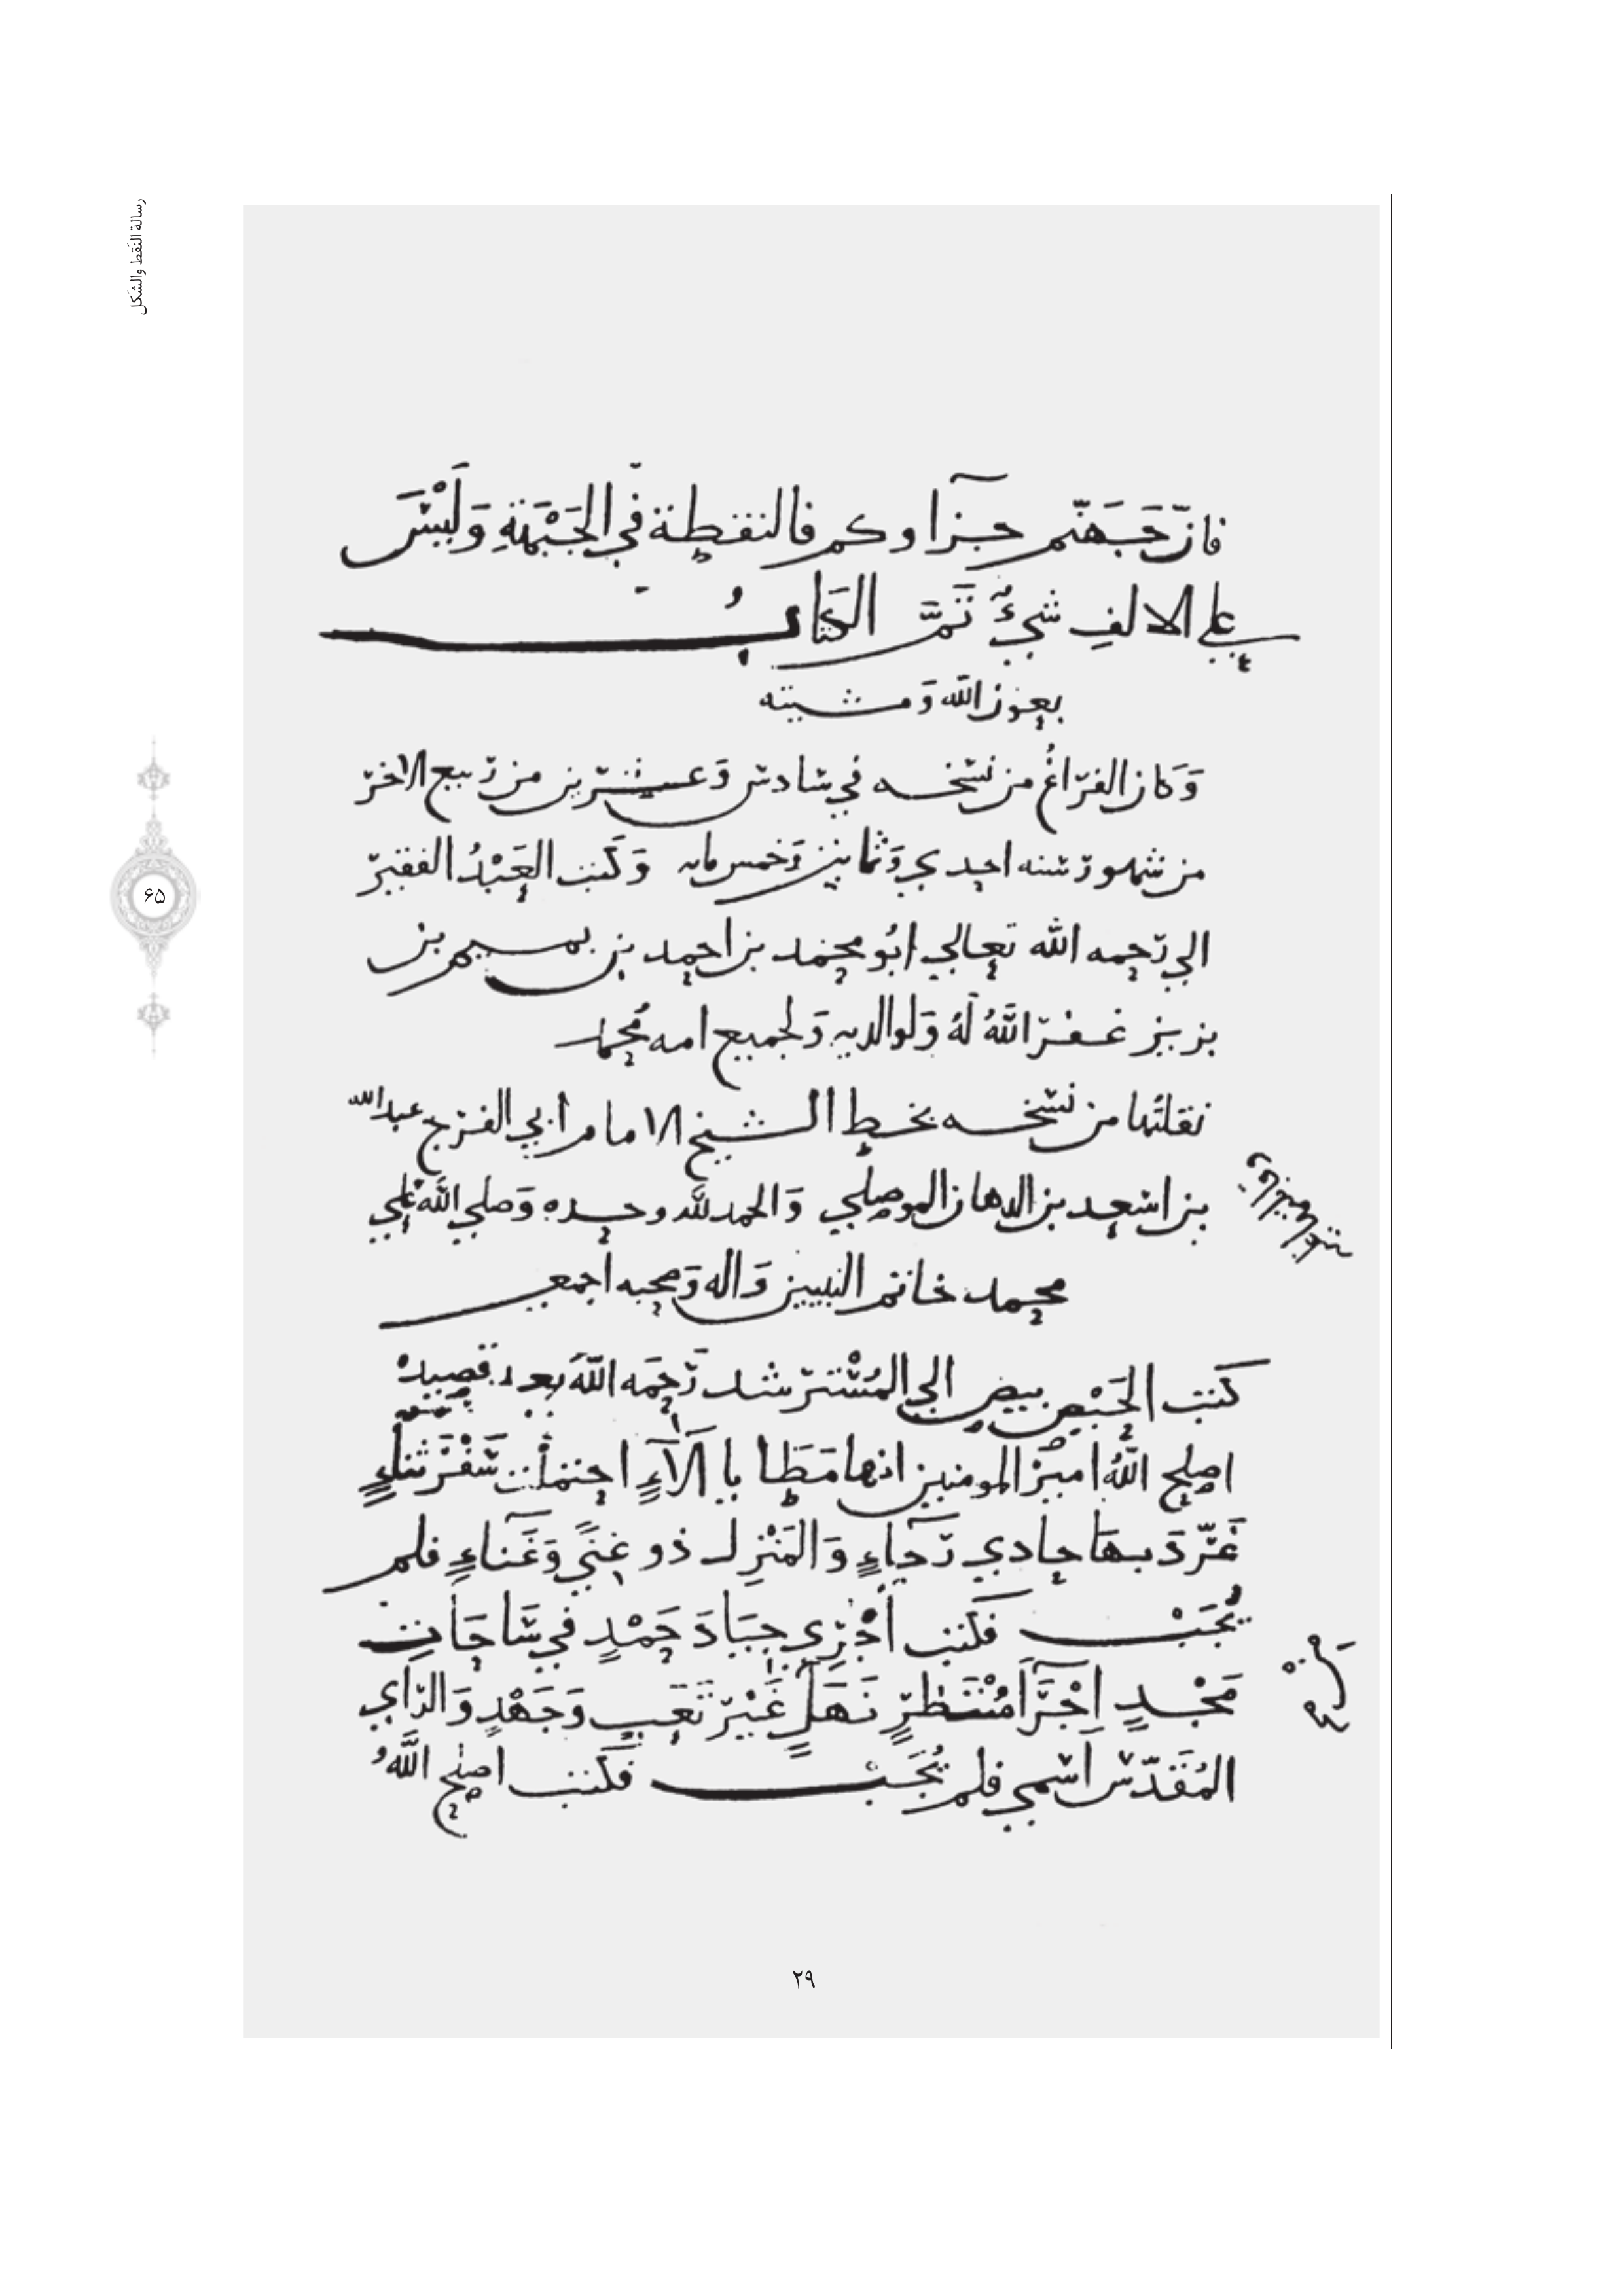 رسالة النقط والشكل
فان جهنم جزاوكم فالنقطة في الجبهة وليس
علي الالف شيء تم الكتاب
بعون الله ومشيته
وكان الفراغ من نسخه في سادس وعشرين من ربيع الاخر
من شهور سنه احدي وثمانين وخمس مايه وكتب العبد الفقير
الي رحمه الله تعالي ابو محمد بن احمد بن
غفر الله له ولوالديه ولجميع امه محمد
نقلتها من نسخه بخط الشيخ الامام ابي الفرج عبد الله
بن اسعد بن الدهان الموصلي والحمد لله وحده وصلي الله علي
محمد خاتم النبيين واله وصحبه اجمعين
كتب الحيص بيص الي المسترشد رحمه الله بعد قصيده
اصلح الله امير المومنين انها مطايا الآء احتملت سفر ثناءٍ
غرد بها حادي رجاءٍ والمنزل ذو غنيً وغناءٍ فلم
يُجَبْ فكتب أجري جياد حمدٍ في ساحات
مجدٍ اجراً منتظرٍ نهلٍ غير تعب وجهدٍ والراي
المقدس اسمي فلم يُجَب فكتب اصلح اللهُ
٢٩
۶۵